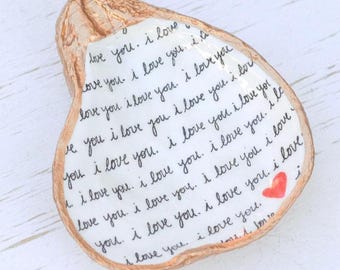 love you. i love
love you. i love you. i love you
love you. i love you. i love you. i
you i love you. i love you i love you
you. i love you. i love you. i love you.
love you. i love you. i love you. i love
you. i love you. i love you. i love you.
love you. i love you. i love you i love
love you. i love you. i love you.
you. i love you. i love